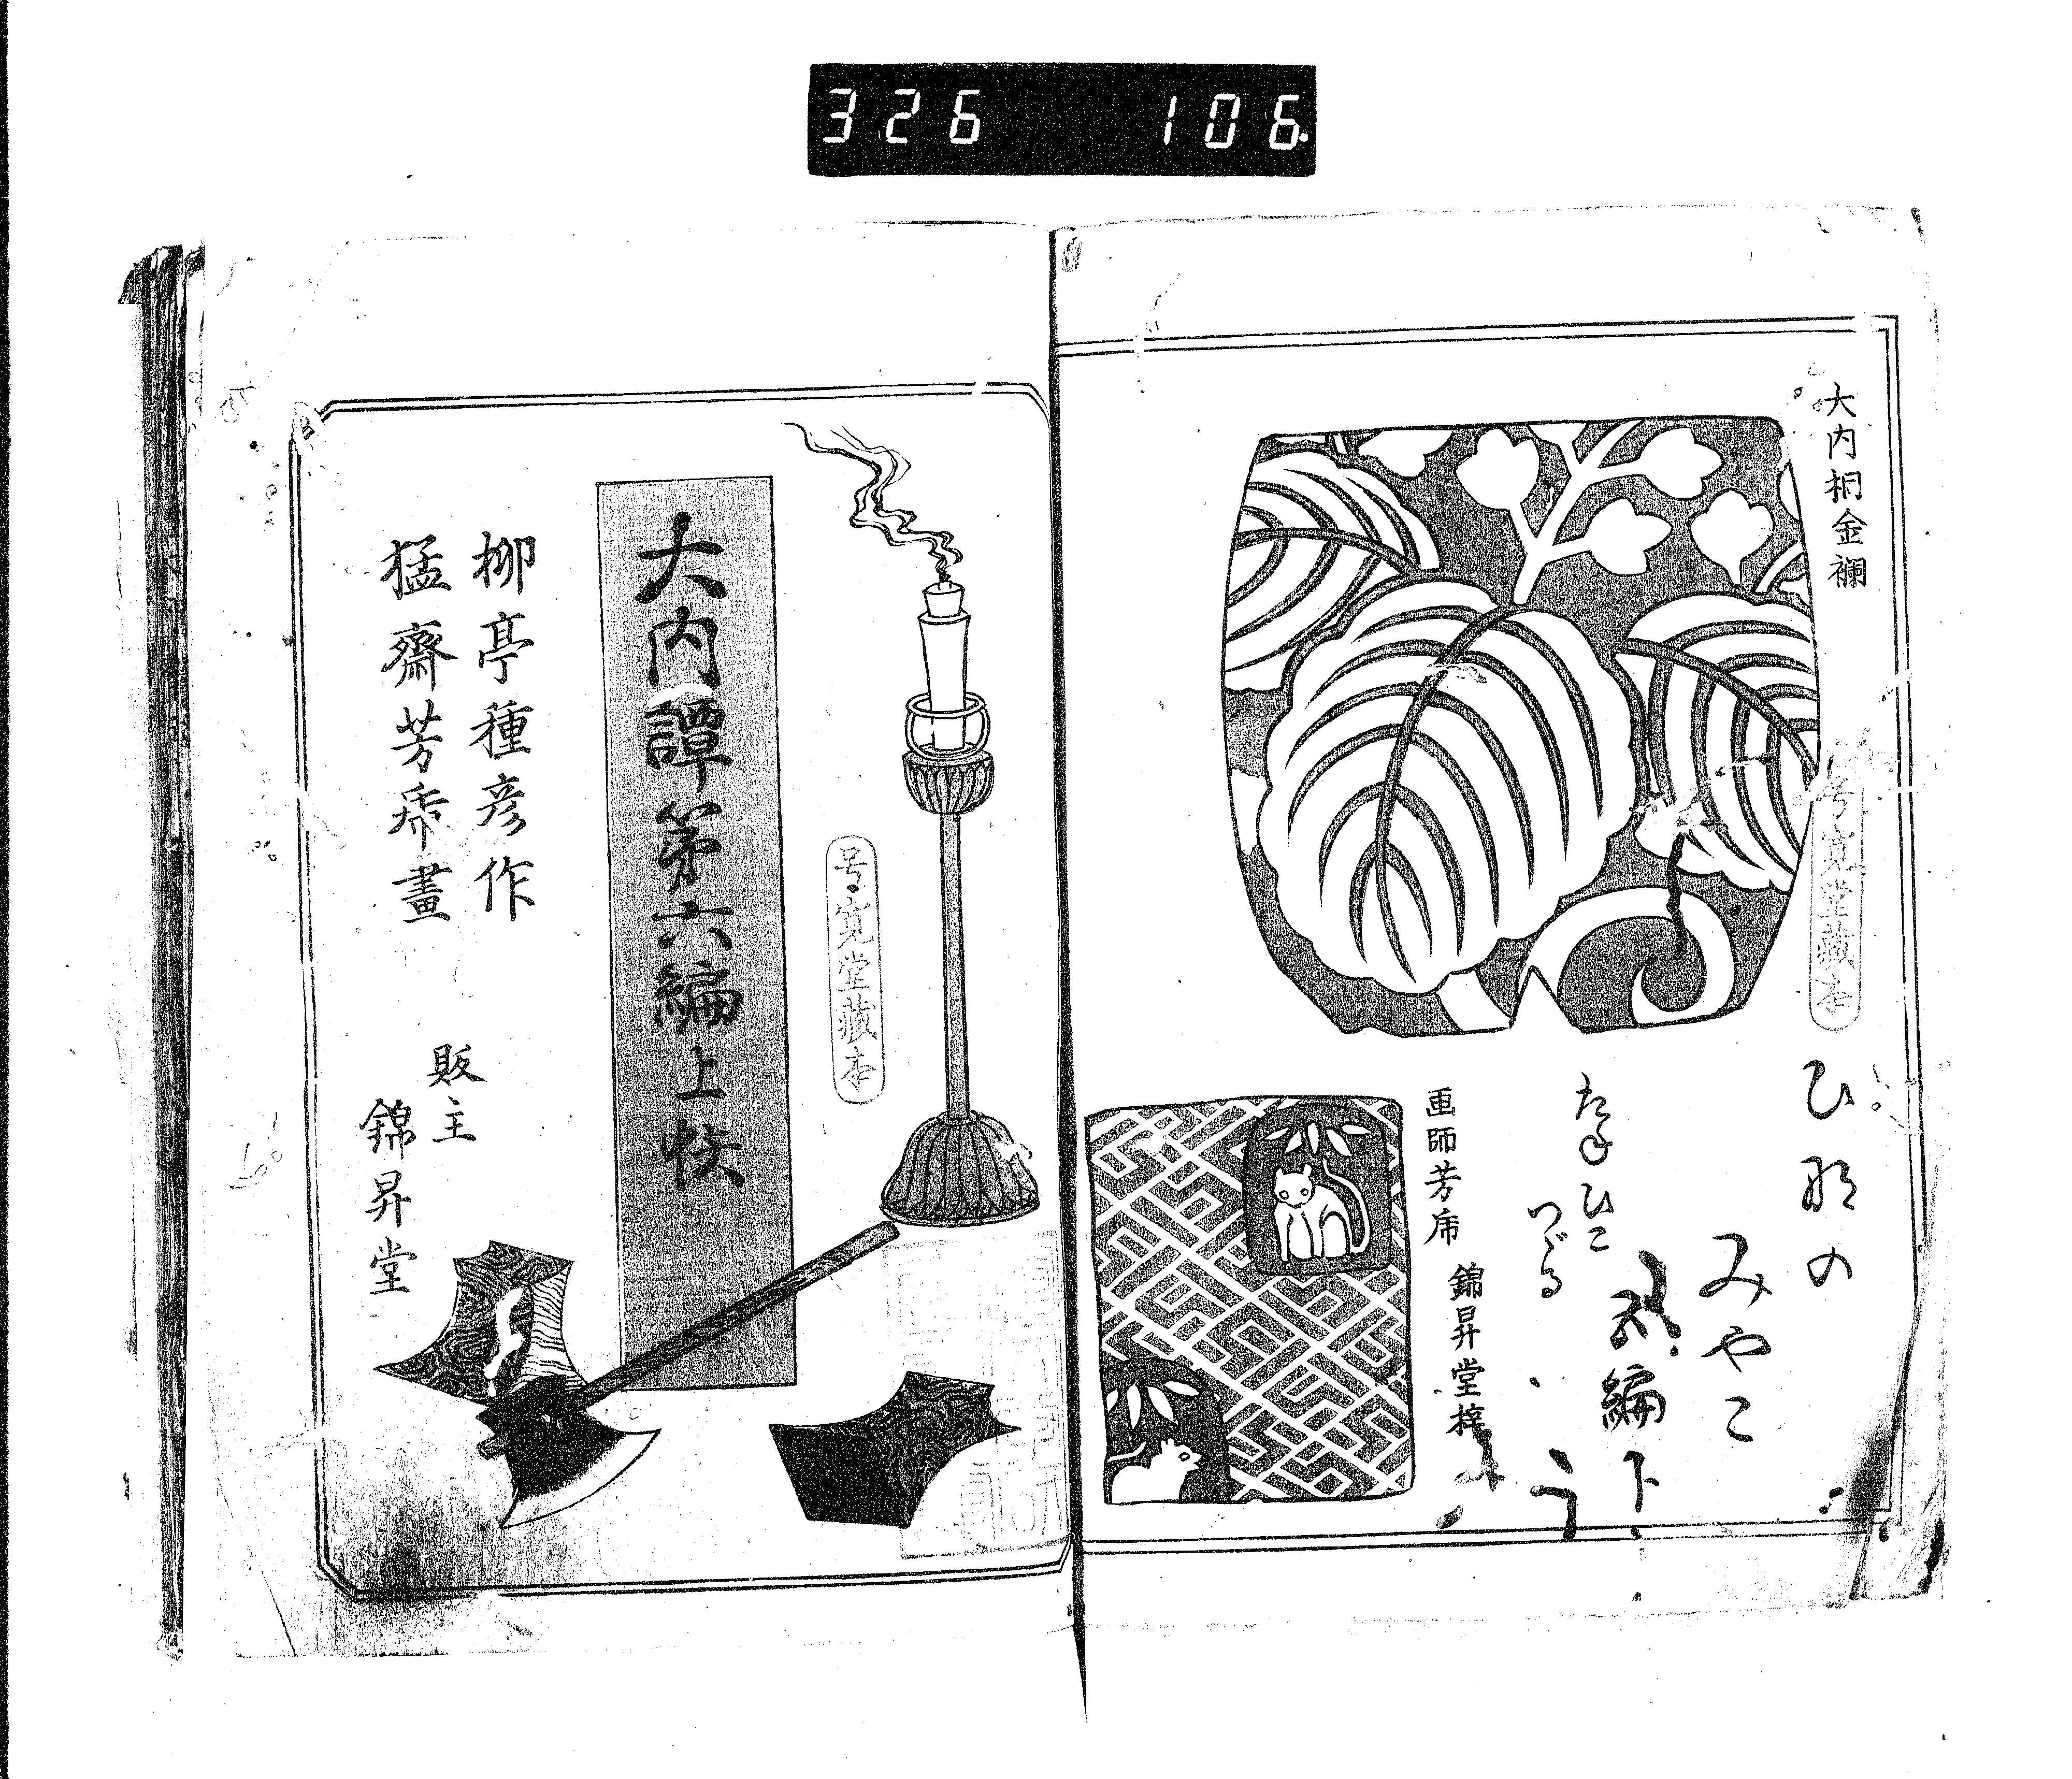 326 106
大内桐金襴
ひなの
みやこ
編下
たねひこ
つゞる
画師芳乕
錦昇堂梓
寛堂藏本
大内譚第六編上帙
寛堂藏本
柳亭種彦作
猛齋芳乕畫
販主
錦昇堂